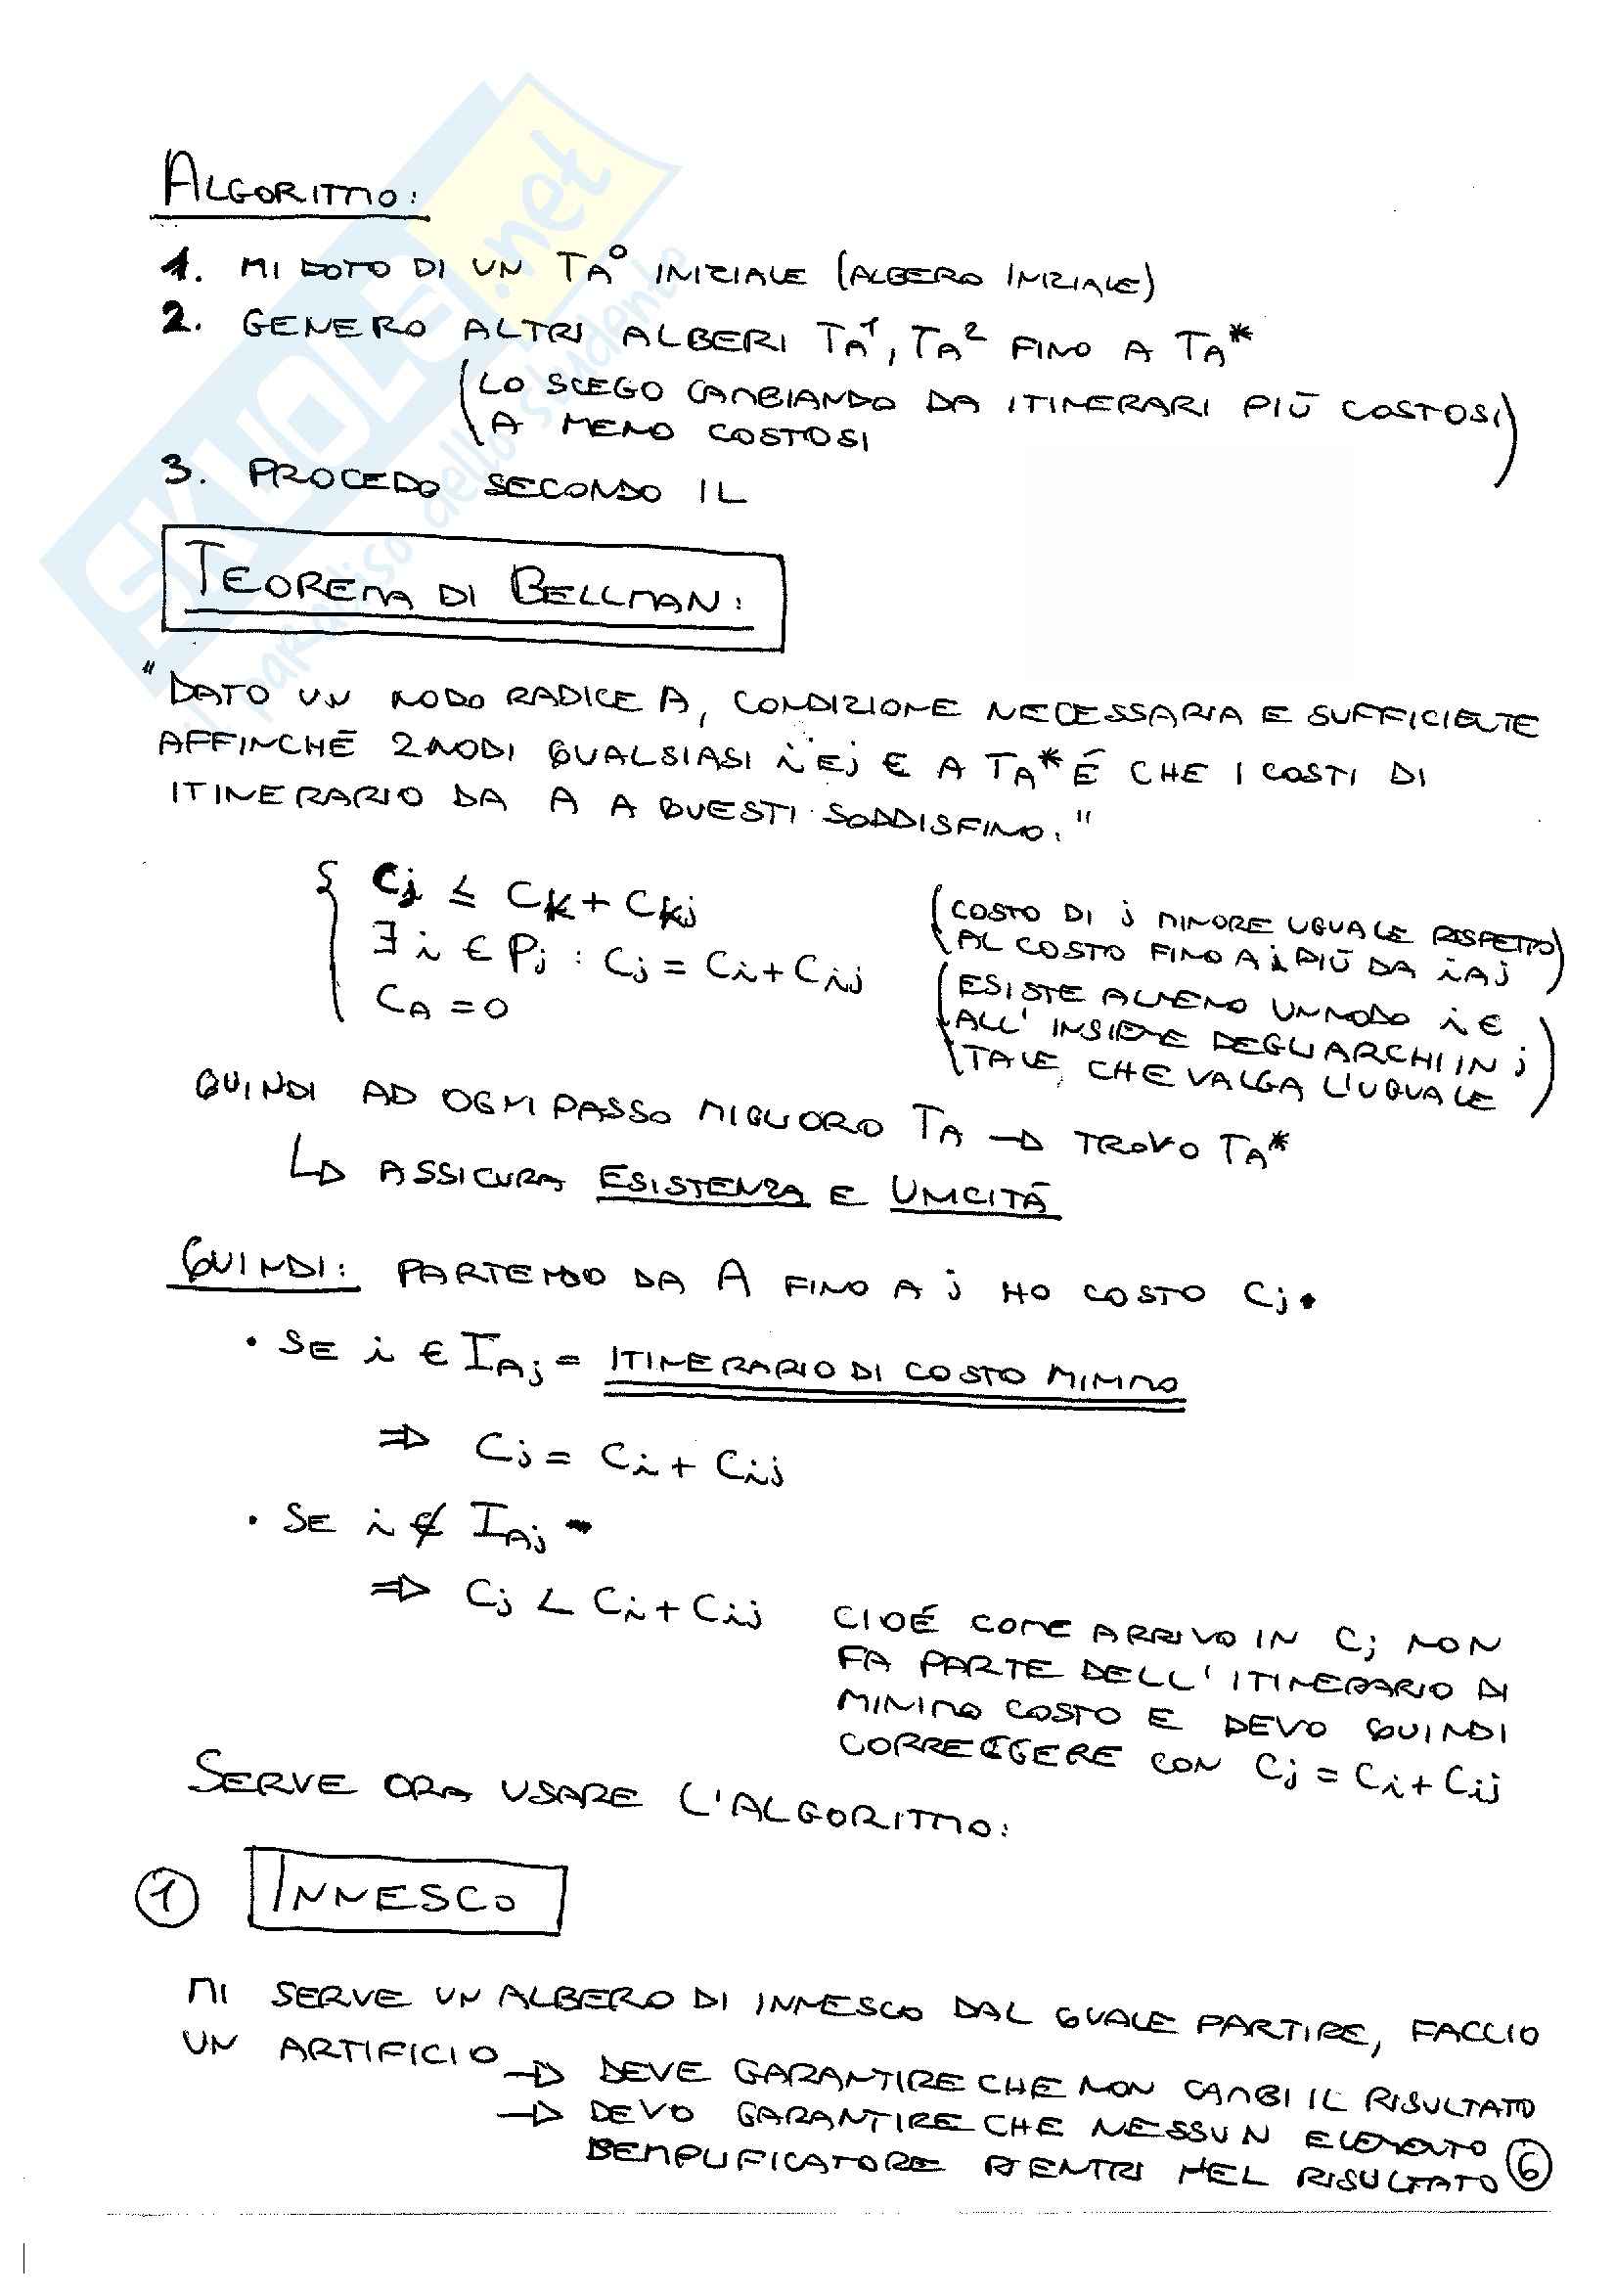 ALGORITMO:
1. MI DOTO DI UN TA° INIZIALE (ALBERO INIZIALE)
2. GENERO ALTRI ALBERI TA¹, TA² FINO A TA*
(LO SCEGO CAMBIANDO DA ITINERARI PIÙ COSTOSI
A MENO COSTOSI)
3. PROCEDO SECONDO IL
TEOREMA DI BELLMAN:
"DATO UN NODO RADICE A, CONDIZIONE NECESSARIA E SUFFICIENTE
AFFINCHÉ 2 NODI QUALSIASI i E j ∈ A TA* É CHE I COSTI DI
ITINERARIO DA A A QUESTI SODDISFINO:"
{ Cj ≤ Ck + Ckj
∃ i ∈ Pj : Cj = Ci + Cij
CA = 0
(COSTO DI j MINORE UGUALE RISPETTO
AL COSTO FINO A i PIÙ DA i A j)
(ESISTE ALMENO UN NODO i ∈
ALL'INSIEME DEGLI ARCHI IN j
TALE CHE VALGA L'UGUALE)
QUINDI AD OGNI PASSO MIGLIORO TA → TROVO TA*
↳ ASSICURA ESISTENZA E UNICITÁ
QUINDI: PARTENDO DA A FINO A j HO COSTO Cj.
• SE i ∈ IAj = ITINERARIO DI COSTO MINIMO
⇒ Cj = Ci + Cij
• SE i ∉ IAj
⇒ Cj < Ci + Cij
CIOÉ COME ARRIVO IN Cj NON
FA PARTE DELL'ITINERARIO DI
MINIMO COSTO E DEVO QUINDI
CORREGGERE CON Cj = Ci + Cij
SERVE ORA USARE L'ALGORITMO:
① INNESCO
MI SERVE UN ALBERO DI INNESCO DAL QUALE PARTIRE, FACCIO
UN ARTIFICIO → DEVE GARANTIRE CHE NON CAMBI IL RISULTATO
→ DEVO GARANTIRE CHE NESSUN ELEMENTO
SEMPLIFICATORE RIENTRI NEL RISULTATO
6
SKUOLA.net
il paradiso dello studente